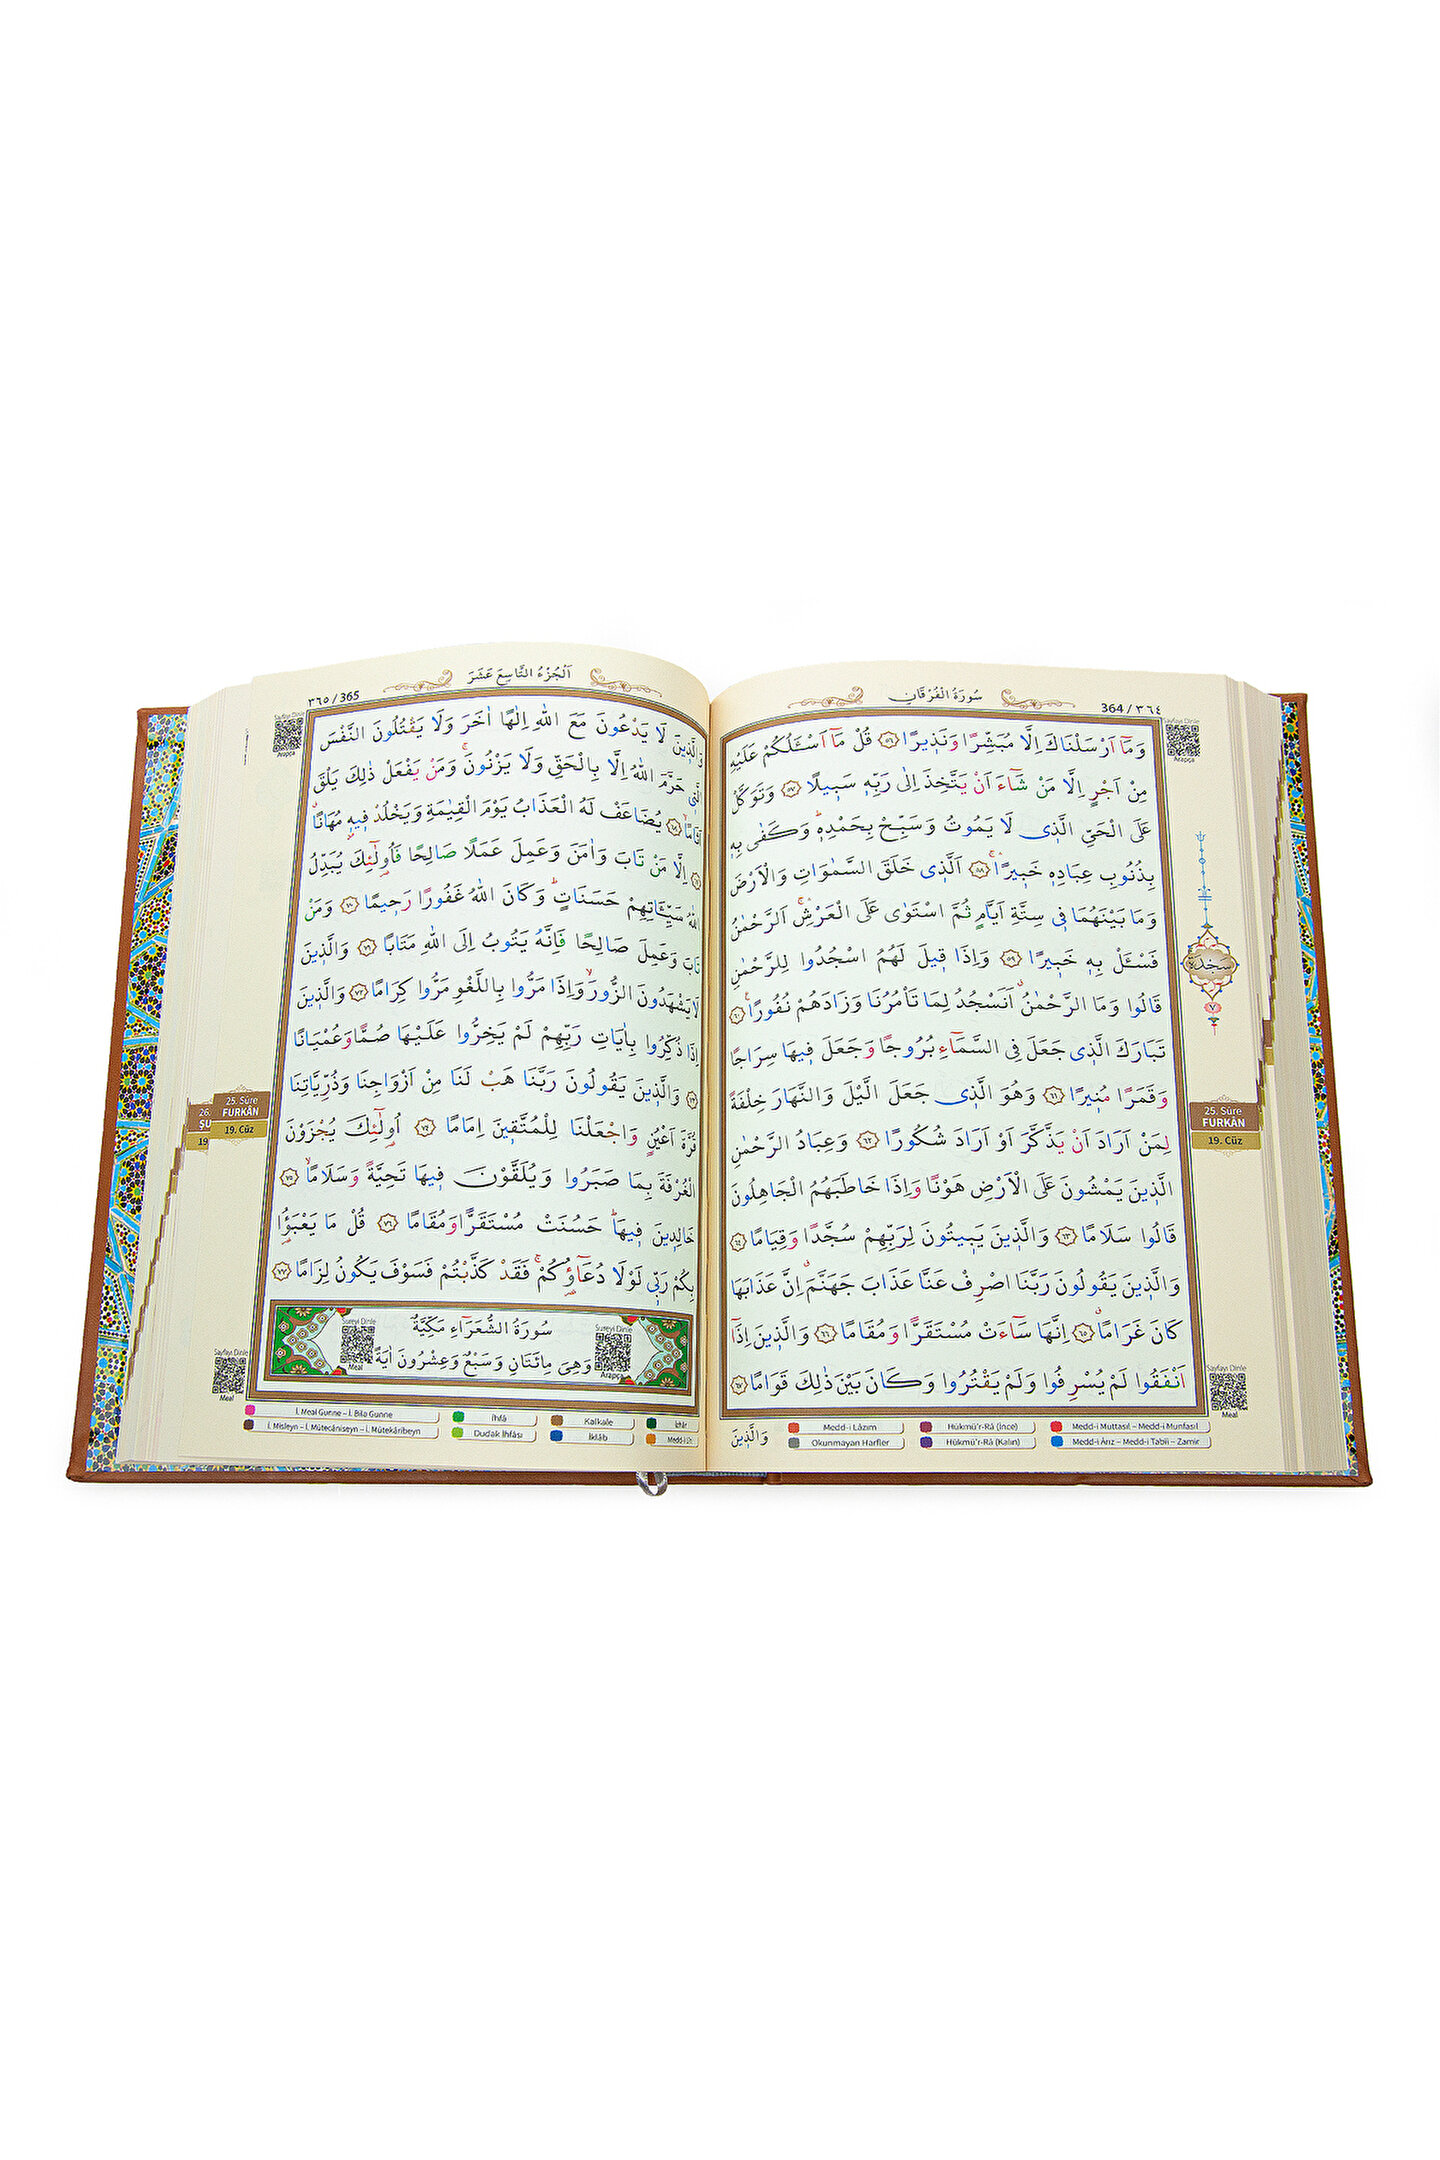 سُورَةُ الْفُرْقَانِ
364 / ٣٦٤
وَمَٓا اَرْسَلْنَاكَ اِلَّا مُبَشِّرًا وَنَذ۪يرًا ﴿٥٦﴾ قُلْ مَٓا اَسْـَٔلُكُمْ عَلَيْهِ
مِنْ اَجْرٍ اِلَّا مَنْ شَٓاءَ اَنْ يَتَّخِذَ اِلٰى رَبِّه۪ سَب۪يلًا ﴿٥٧﴾ وَتَوَكَّلْ
عَلَى الْحَيِّ الَّذ۪ى لَا يَمُوتُ وَسَبِّحْ بِحَمْدِه۪ۜ وَكَفٰى بِه۪
بِذُنُوبِ عِبَادِه۪ خَب۪يرًاۚ ﴿٥٨﴾ اَلَّذ۪ى خَلَقَ السَّمٰوَاتِ وَالْاَرْضَ
وَمَا بَيْنَهُمَا ف۪ى سِتَّةِ اَيَّامٍ ثُمَّ اسْتَوٰى عَلَى الْعَرْشِۚ اَلرَّحْمٰنُ
فَسْـَٔلْ بِه۪ خَب۪يرًا ﴿٥٩﴾ وَاِذَا ق۪يلَ لَهُمُ اسْجُدُوا لِلرَّحْمٰنِ
قَالُوا وَمَا الرَّحْمٰنُۗ اَنَسْجُدُ لِمَا تَأْمُرُنَا وَزَادَهُمْ نُفُورًاۚ ﴿٦٠﴾
تَبَارَكَ الَّذ۪ى جَعَلَ فِى السَّمَٓاءِ بُرُوجًا وَجَعَلَ ف۪يهَا سِرَاجًا
وَقَمَرًا مُن۪يرًا ﴿٦١﴾ وَهُوَ الَّذ۪ى جَعَلَ الَّيْلَ وَالنَّهَارَ خِلْفَةً
لِمَنْ اَرَادَ اَنْ يَذَّكَّرَ اَوْ اَرَادَ شُكُورًا ﴿٦٢﴾ وَعِبَادُ الرَّحْمٰنِ
الَّذ۪ينَ يَمْشُونَ عَلَى الْاَرْضِ هَوْنًا وَاِذَا خَاطَبَهُمُ الْجَاهِلُونَ
قَالُوا سَلَامًا ﴿٦٣﴾ وَالَّذ۪ينَ يَب۪يتُونَ لِرَبِّهِمْ سُجَّدًا وَقِيَامًا ﴿٦٤﴾
وَالَّذ۪ينَ يَقُولُونَ رَبَّنَا اصْرِفْ عَنَّا عَذَابَ جَهَنَّمَۗ اِنَّ عَذَابَهَا
كَانَ غَرَامًاۗ ﴿٦٥﴾ اِنَّهَا سَٓاءَتْ مُسْتَقَرًّا وَمُقَامًا ﴿٦٦﴾ وَالَّذ۪ينَ اِذَٓا
اَنْفَقُوا لَمْ يُسْرِفُوا وَلَمْ يَقْتُرُوا وَكَانَ بَيْنَ ذٰلِكَ قَوَامًا ﴿٦٧﴾
وَالَّذ۪ينَ
Sayfayı Dinle
Arapça
سجدة
٧
25. Sûre
FURKÂN
19. Cüz
Sayfayı Dinle
Meal
Medd-i Lâzım
Hükmü'r-Râ (İnce)
Medd-i Muttasıl – Medd-i Munfasıl
Okunmayan Harfler
Hükmü'r-Râ (Kalın)
Medd-i Ârız – Medd-i Tabiî – Zamir
اَلْجُزْءُ التَّاسِعَ عَشَرَ
٣٦٥ / 365
وَالَّذ۪ينَ لَا يَدْعُونَ مَعَ اللّٰهِ اِلٰهًا اٰخَرَ وَلَا يَقْتُلُونَ النَّفْسَ
الَّت۪ى حَرَّمَ اللّٰهُ اِلَّا بِالْحَقِّ وَلَا يَزْنُونَۚ وَمَنْ يَفْعَلْ ذٰلِكَ يَلْقَ
اَثَامًاۙ ﴿٦٨﴾ يُضَاعَفْ لَهُ الْعَذَابُ يَوْمَ الْقِيٰمَةِ وَيَخْلُدْ ف۪يه۪ مُهَانًاۗ
﴿٦٩﴾ اِلَّا مَنْ تَابَ وَاٰمَنَ وَعَمِلَ عَمَلًا صَالِحًا فَاُو۬لٰٓئِكَ يُبَدِّلُ
اللّٰهُ سَيِّـَٔاتِهِمْ حَسَنَاتٍۜ وَكَانَ اللّٰهُ غَفُورًا رَح۪يمًا ﴿٧٠﴾ وَمَنْ
تَابَ وَعَمِلَ صَالِحًا فَاِنَّهُ يَتُوبُ اِلَى اللّٰهِ مَتَابًا ﴿٧١﴾ وَالَّذ۪ينَ
لَا يَشْهَدُونَ الزُّورَۙ وَاِذَا مَرُّوا بِاللَّغْوِ مَرُّوا كِرَامًا ﴿٧٢﴾ وَالَّذ۪ينَ
اِذَا ذُكِّرُوا بِاٰيَاتِ رَبِّهِمْ لَمْ يَخِرُّوا عَلَيْهَا صُمًّا وَعُمْيَانًا
﴿٧٣﴾ وَالَّذ۪ينَ يَقُولُونَ رَبَّنَا هَبْ لَنَا مِنْ اَزْوَاجِنَا وَذُرِّيَّاتِنَا
قُرَّةَ اَعْيُنٍ وَاجْعَلْنَا لِلْمُتَّق۪ينَ اِمَامًا ﴿٧٤﴾ اُو۬لٰٓئِكَ يُجْزَوْنَ
الْغُرْفَةَ بِمَا صَبَرُوا وَيُلَقَّوْنَ ف۪يهَا تَحِيَّةً وَسَلَامًاۙ ﴿٧٥﴾
خَالِد۪ينَ ف۪يهَاۜ حَسُنَتْ مُسْتَقَرًّا وَمُقَامًا ﴿٧٦﴾ قُلْ مَا يَعْبَؤُ۬ا
بِكُمْ رَبّ۪ى لَوْلَا دُعَٓاؤُ۬كُمْۚ فَقَدْ كَذَّبْتُمْ فَسَوْفَ يَكُونُ لِزَامًا ﴿٧٧﴾
Sureyi Dinle
Meal
سُورَةُ الشُّعَرَاءِ مَكِّيَّةٌ
وَهِيَ مِائَتَانِ وَسَبْعٌ وَعِشْرُونَ اٰيَةً
Sureyi Dinle
Arapça
Sayfayı Dinle
Arapça
25. Sûre
FURKÂN
19. Cüz
26.
ŞU
19
Sayfayı Dinle
Meal
İ. Meal Gunne – İ. Bila Gunne
İhfâ
Kalkale
İzhâr
İ. Misleyn – İ. Mütecâniseyn – İ. Mütekâribeyn
Dudak İhfâsı
İklâb